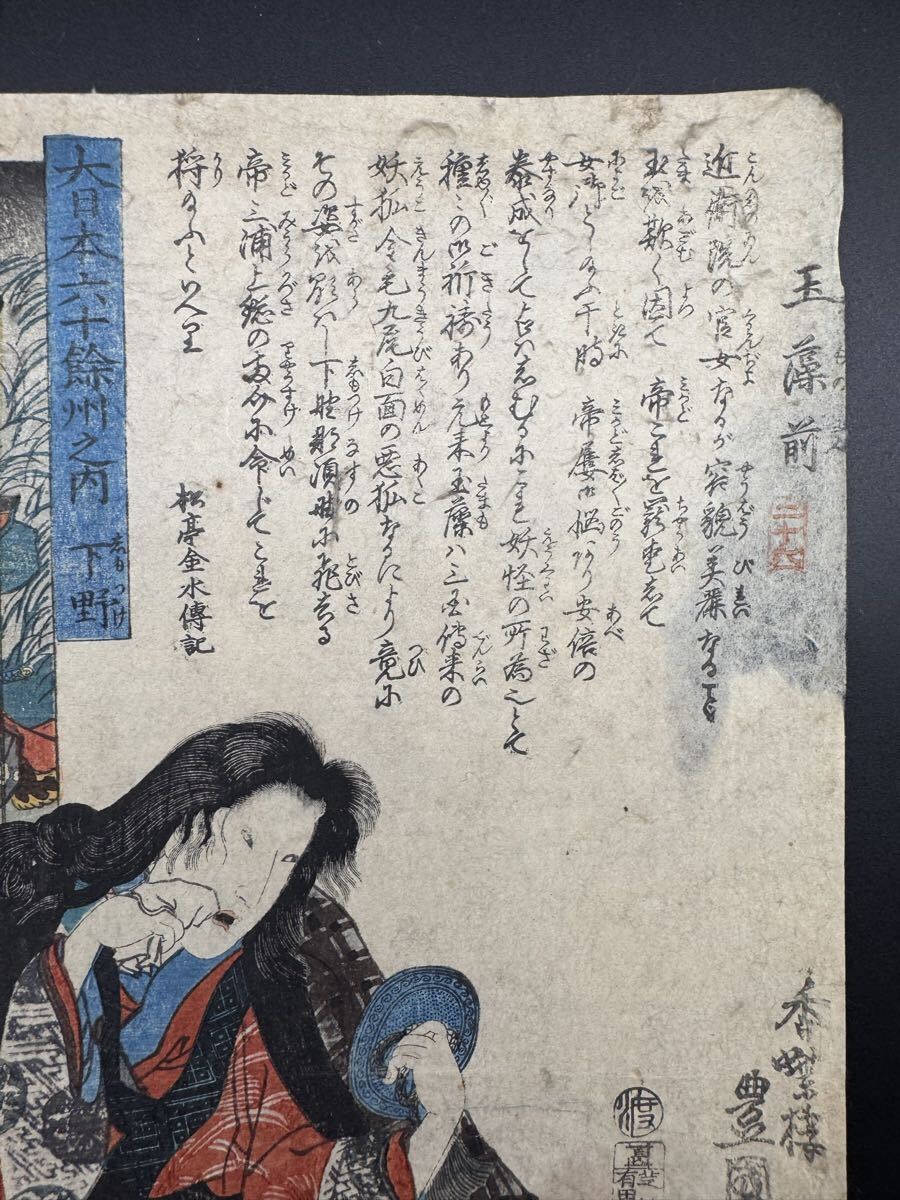 玉藻前
二十六
近衛院の官女なるが容貌美麗なること
玉を欺く因て帝これを寵愛して
女御とし給ふ于時帝屡御悩あり安倍の
泰成をして占はしむるにこれ妖怪の所為也とて
種々の御祈祷あり元来玉藻ハ三国伝来の
妖狐金毛九尾白面の悪狐なるにより竟に
その姿を顕ハし下野那須野に飛去る
帝三浦上総の両介に命じてこれを
狩給ふといへり
松亭金水傳記
大日本六十餘州之内
下野
香蝶楼
豊
渡